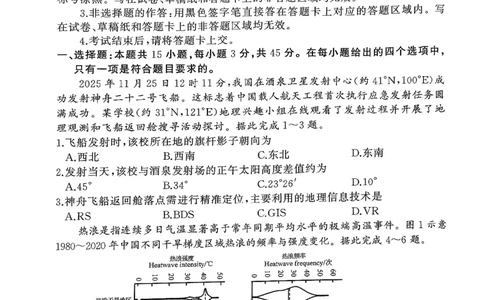 3.非选择题的作答:用黑色签字笔直接答在答题卡上对应的答题区域内。写
在试卷、草稿纸和答题卡上的非答题区域均无效。
4.考试结束后,请将答题卡上交。
一、选择题:本题共 15 小题,每小题 3 分,共 45 分。在每小题给出的四个选项中,
只有一项是符合题目要求的。
2025 年 11 月 25 日 12 时 11 分,我国在酒泉卫星发射中心(约 41°N,100°E)成
功发射神舟二十二号飞船。这标志着中国载人航天工程首次执行应急发射任务圆
满成功。某学校(约 31°N,121°E)地理兴趣小组在线观看了发射过程并开展了地
理观测和飞船返回舱搜寻活动探讨。据此完成 1~3 题。
1.飞船发射时,该校所在地的旗杆影子朝向为
A.西北 B.西南 C.东北 D.东南
2.发射当天,该校与酒泉发射场的正午太阳高度差值约为
A.45° B.34° C.23°26′ D.10°
3.神舟飞船返回舱落点需进行精准定位,主要利用的地理信息技术是
A.RS B.BDS C.GIS D.VR
热浪是指连续多日气温显著高于常年同期平均水平的极端高温事件。图 1 示意
1980~2020 年中国不同干旱梯度区域热浪的频率与强度变化。据此完成 4~6 题。
热浪强度 热浪频率
Heatwave intensity/℃ Heatwave frequency/次
0 10 20 30 40 50 0 10 20 30 40 50 60